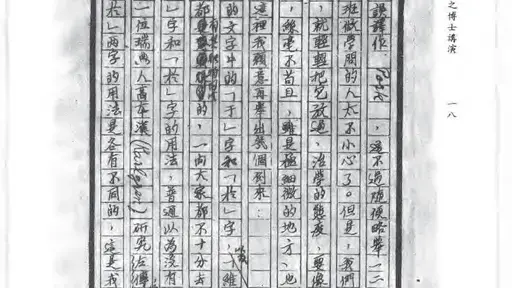 之博士講演
一八
誤譯作 ，這不過隨便略舉一二
班做學問的人太不小心了。但是，我們
，就輕輕把它放過，治學的態度，要像
，絲毫不苟且，雖是極細微的地方，也
這裡我願意再舉出幾個例來：
的文字中的「于」字和「於」字，雖
都 的，一向大家都不十分去
」字和「於」字的用法，普通以為沒有
一位瑞典人高本漢(Karlgren)研究佐傳
於」兩字的用法是各有不同的，這是我